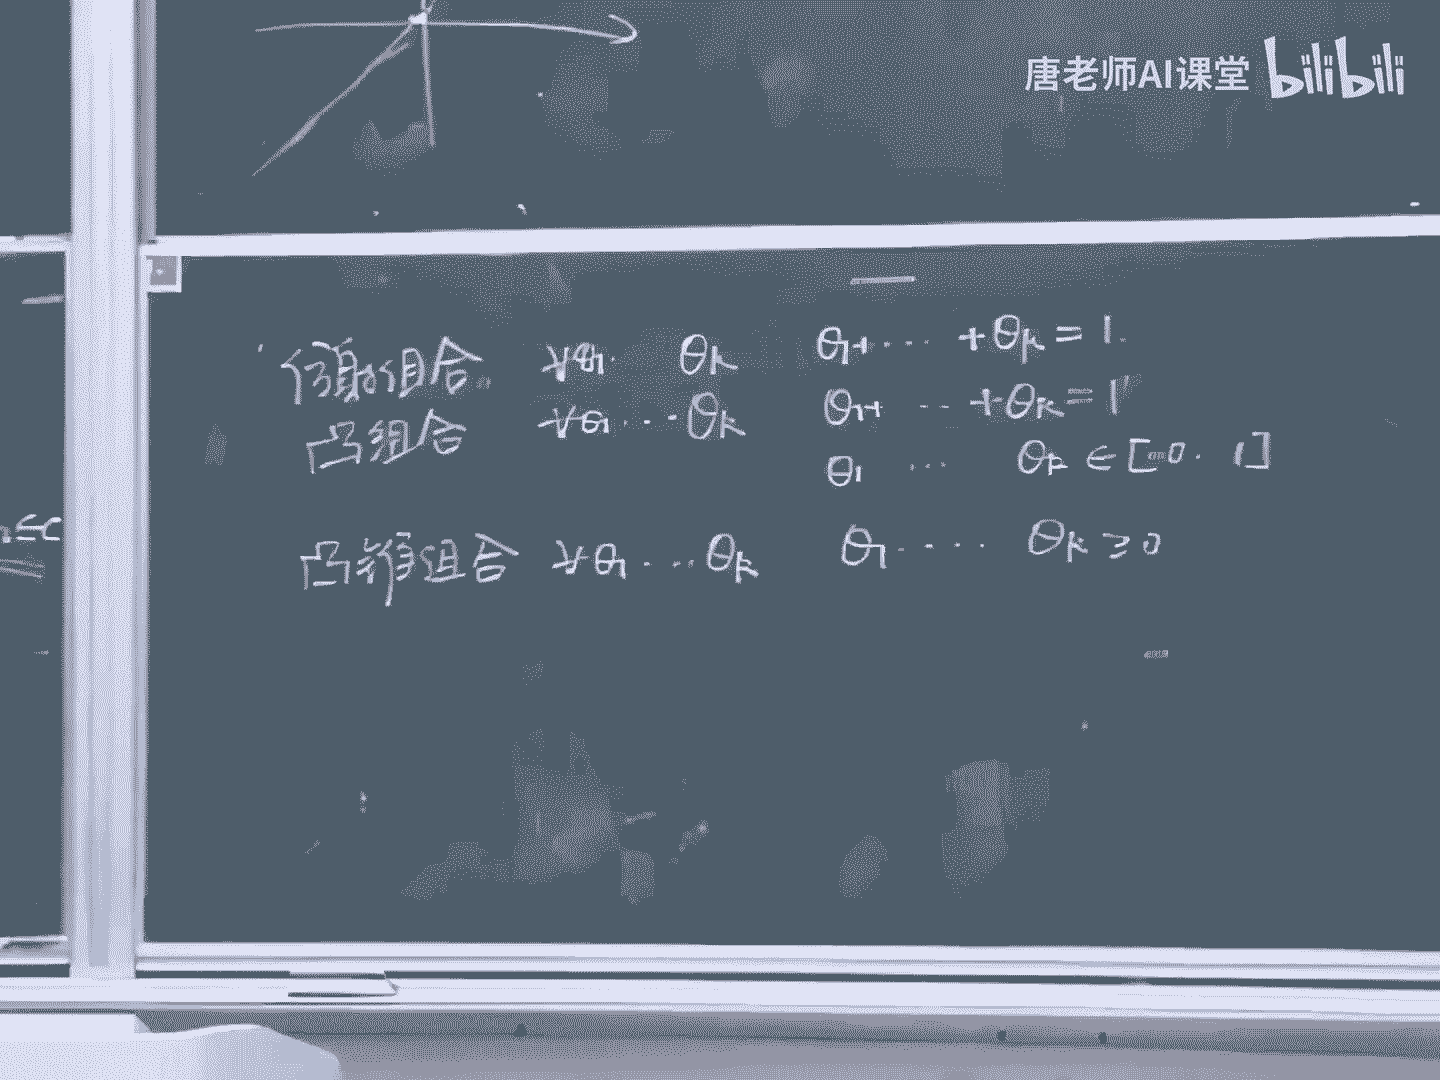 唐老师AI课堂 bilibili
仿射组合 ∀θ₁ θₖ θ₁+ ··· +θₖ = 1
凸组合 ∀θ₁ ··· θₖ θ₁+ ··· +θₖ = 1
θ₁ ··· θₖ ∈ [0. 1]
凸锥组合 ∀θ₁ ... θₖ θ₁ ···· θₖ ≥ 0